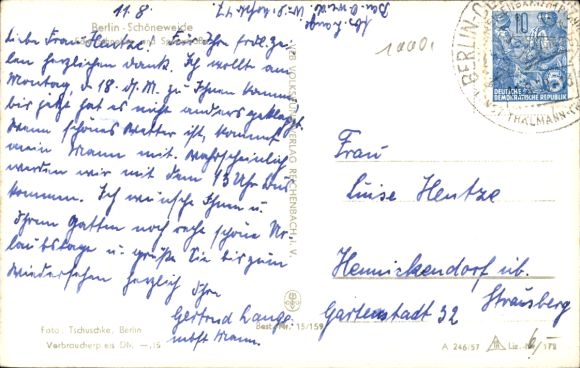 11.8.
Berlin-Schöneweide
Liebe Frau Hentze! Für Ihre frdl. Zei-
len herzlichen Dank. Ich wollte am
Montag, d. 18. d. M. zu Ihnen kommen
bis jetzt hat es nicht anders geklappt.
Wenn schönes Wetter ist, kommt
mein Mann mit. Wahrscheinlich
werden wir mit dem 13 Uhr Bus
kommen. Ich wünsche Ihnen u.
Ihrem Gatten noch recht schöne Ur-
laubstage u. grüße Sie bis zum
Wiedersehen herzlich Ihre
Gertrud Lange
nebst Mann.
Foto: Tschuschke, Berlin
Verbraucherpreis DM —,15
Best.-Nr. 15/159
VEB VOLKSKUNSTVERLAG REICHENBACH I. V.
Abs. Lange
10
DEUTSCHE
DEMOKRATISCHE REPUBLIK
BERLIN
THÄLMANN
Frau
Luise Hentze
Hennickendorf üb.
Strausberg
Gartenstraße 32
A 246/57